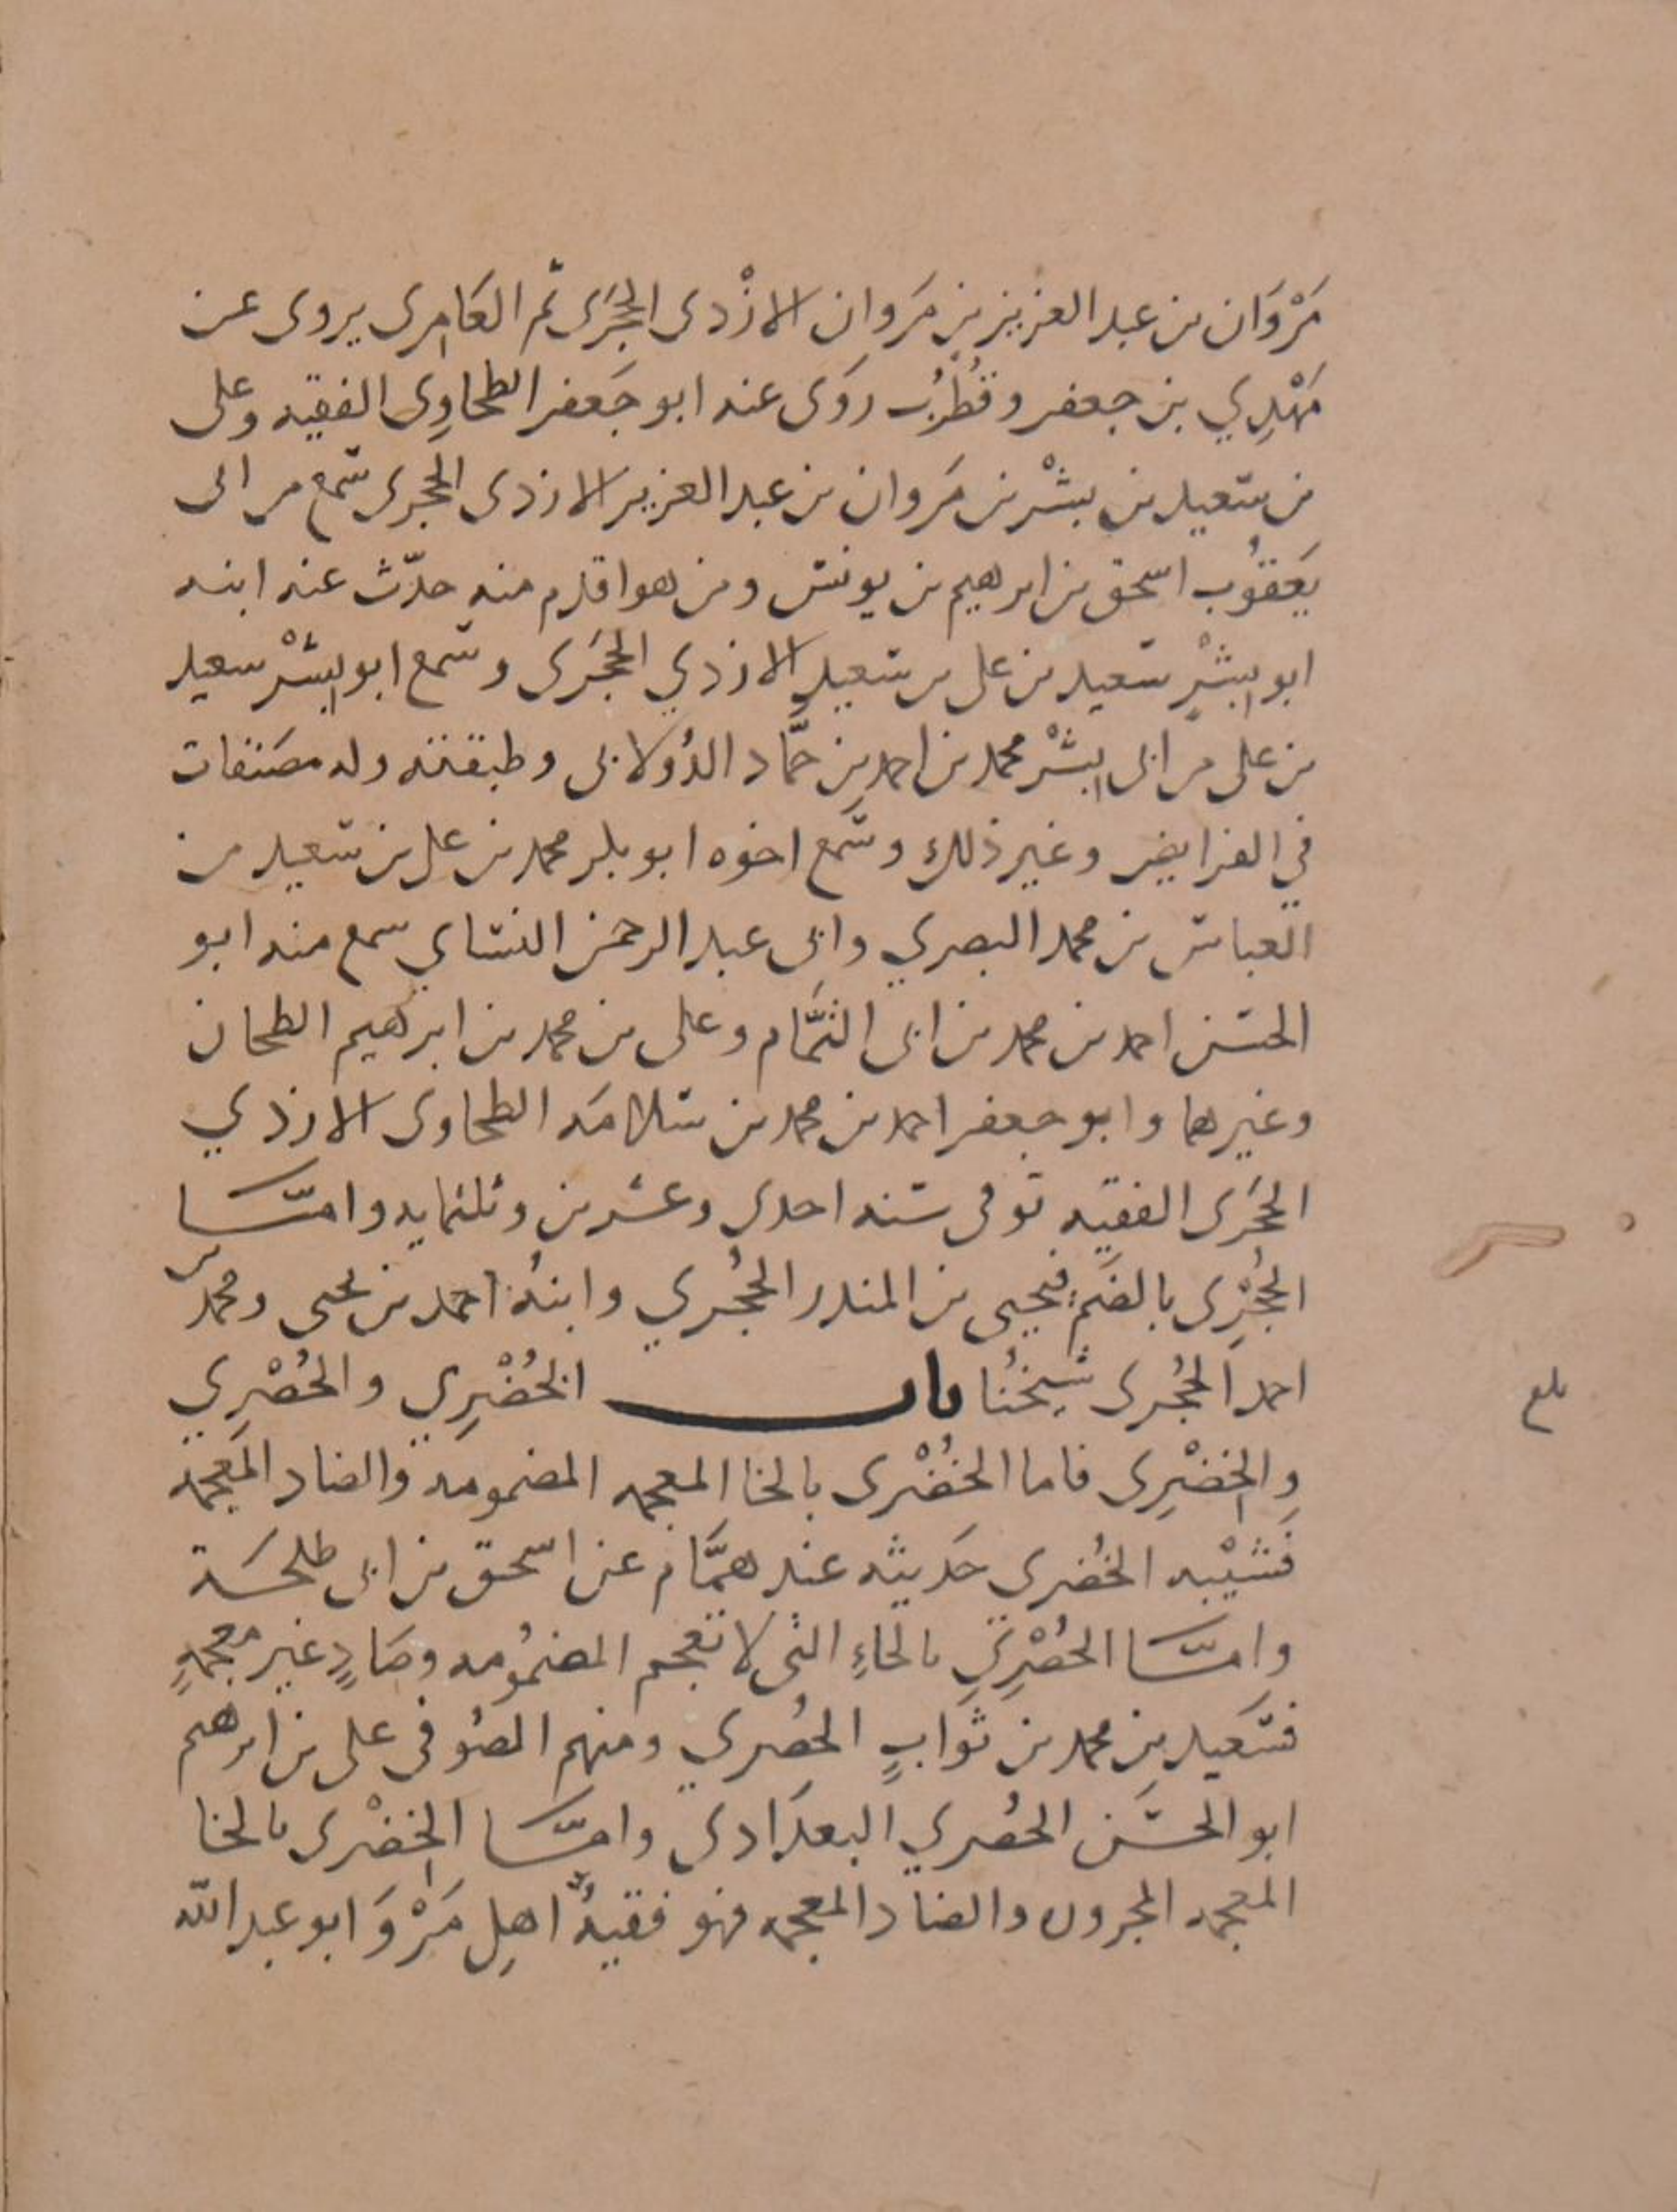 مَرْوَان بن عبد العزيز بن مَروان الازْدى الحَجْرَى ثم العَامِرى يروى عن
مَهْدِي بن جعفر وقُطْرُب روَى عنه ابو جَعفر الطحاوِى الفقيه وعلى
بن سَعيد بن بِشْر بن مَروان بن عبد العزيز الازدى الحجرى سَمع من ابى
يَعقُوب اسحق بن ابرهيم بن يونس ومن هو اقدم منه حدّث عنه ابنه
ابو البِشْرِ سَعيد بن على بن سَعيدٍ الازدي الحَجَرى وسَمع ابو البِشْر سعيد
بن على من ابى البِشْر محمد بن احمد بن حمَّاد الدُولابى وطبقته وله مصَنفات
في الفرايض وغير ذلك وسَمع اخوه ابو بكر محمد بن على بن سَعيد من
العباس بن محمد البصري وابى عبد الرحمن النسَاي سمع منه ابو
الحسَن احمد بن محمد بن ابى التمَّام وعلى بن محمد بن ابرهيم الطحان
وغيرهما وابو جعفر احمد بن محمد بن سَلامَه الطحاوى الازدي
الحَجَرى الفقيه توفى سَنه احدى وعشرين وثلثمايه وامّا
الحُجْرِى بالضَمِّ فيحيى بن المنذر الحُجْري وابنهُ احمد بن يحيى ومحمد بن
احمد الحُجرى شيخُنا باب الخُضْرِي والحُصْرِي
والخِضْرِى فاما الخُضْرى بالخا المعجمه المضمومَه والضاد المعجمَه
فَشَيْبه الخُضرى حَديثه عند همَّام عن اسحق بن ابى طلحَة
وامّا الحُصْرِي بالحَاءِ التى لا تعجم المضمُومه وصَادٍ غير معجمهٍ
فسَعيد بن محمد بن ثوَابٍ الحُصري ومنهم الصُوفى على بن ابرهيم
ابو الحسَن الحُصري البغدَادى وامّا الخِضْرى بالخا
المعجمه المجرون والضاد المعجمه فهو فقيهُ اهلِ مَرْوَ ابو عبد الله
بلغ